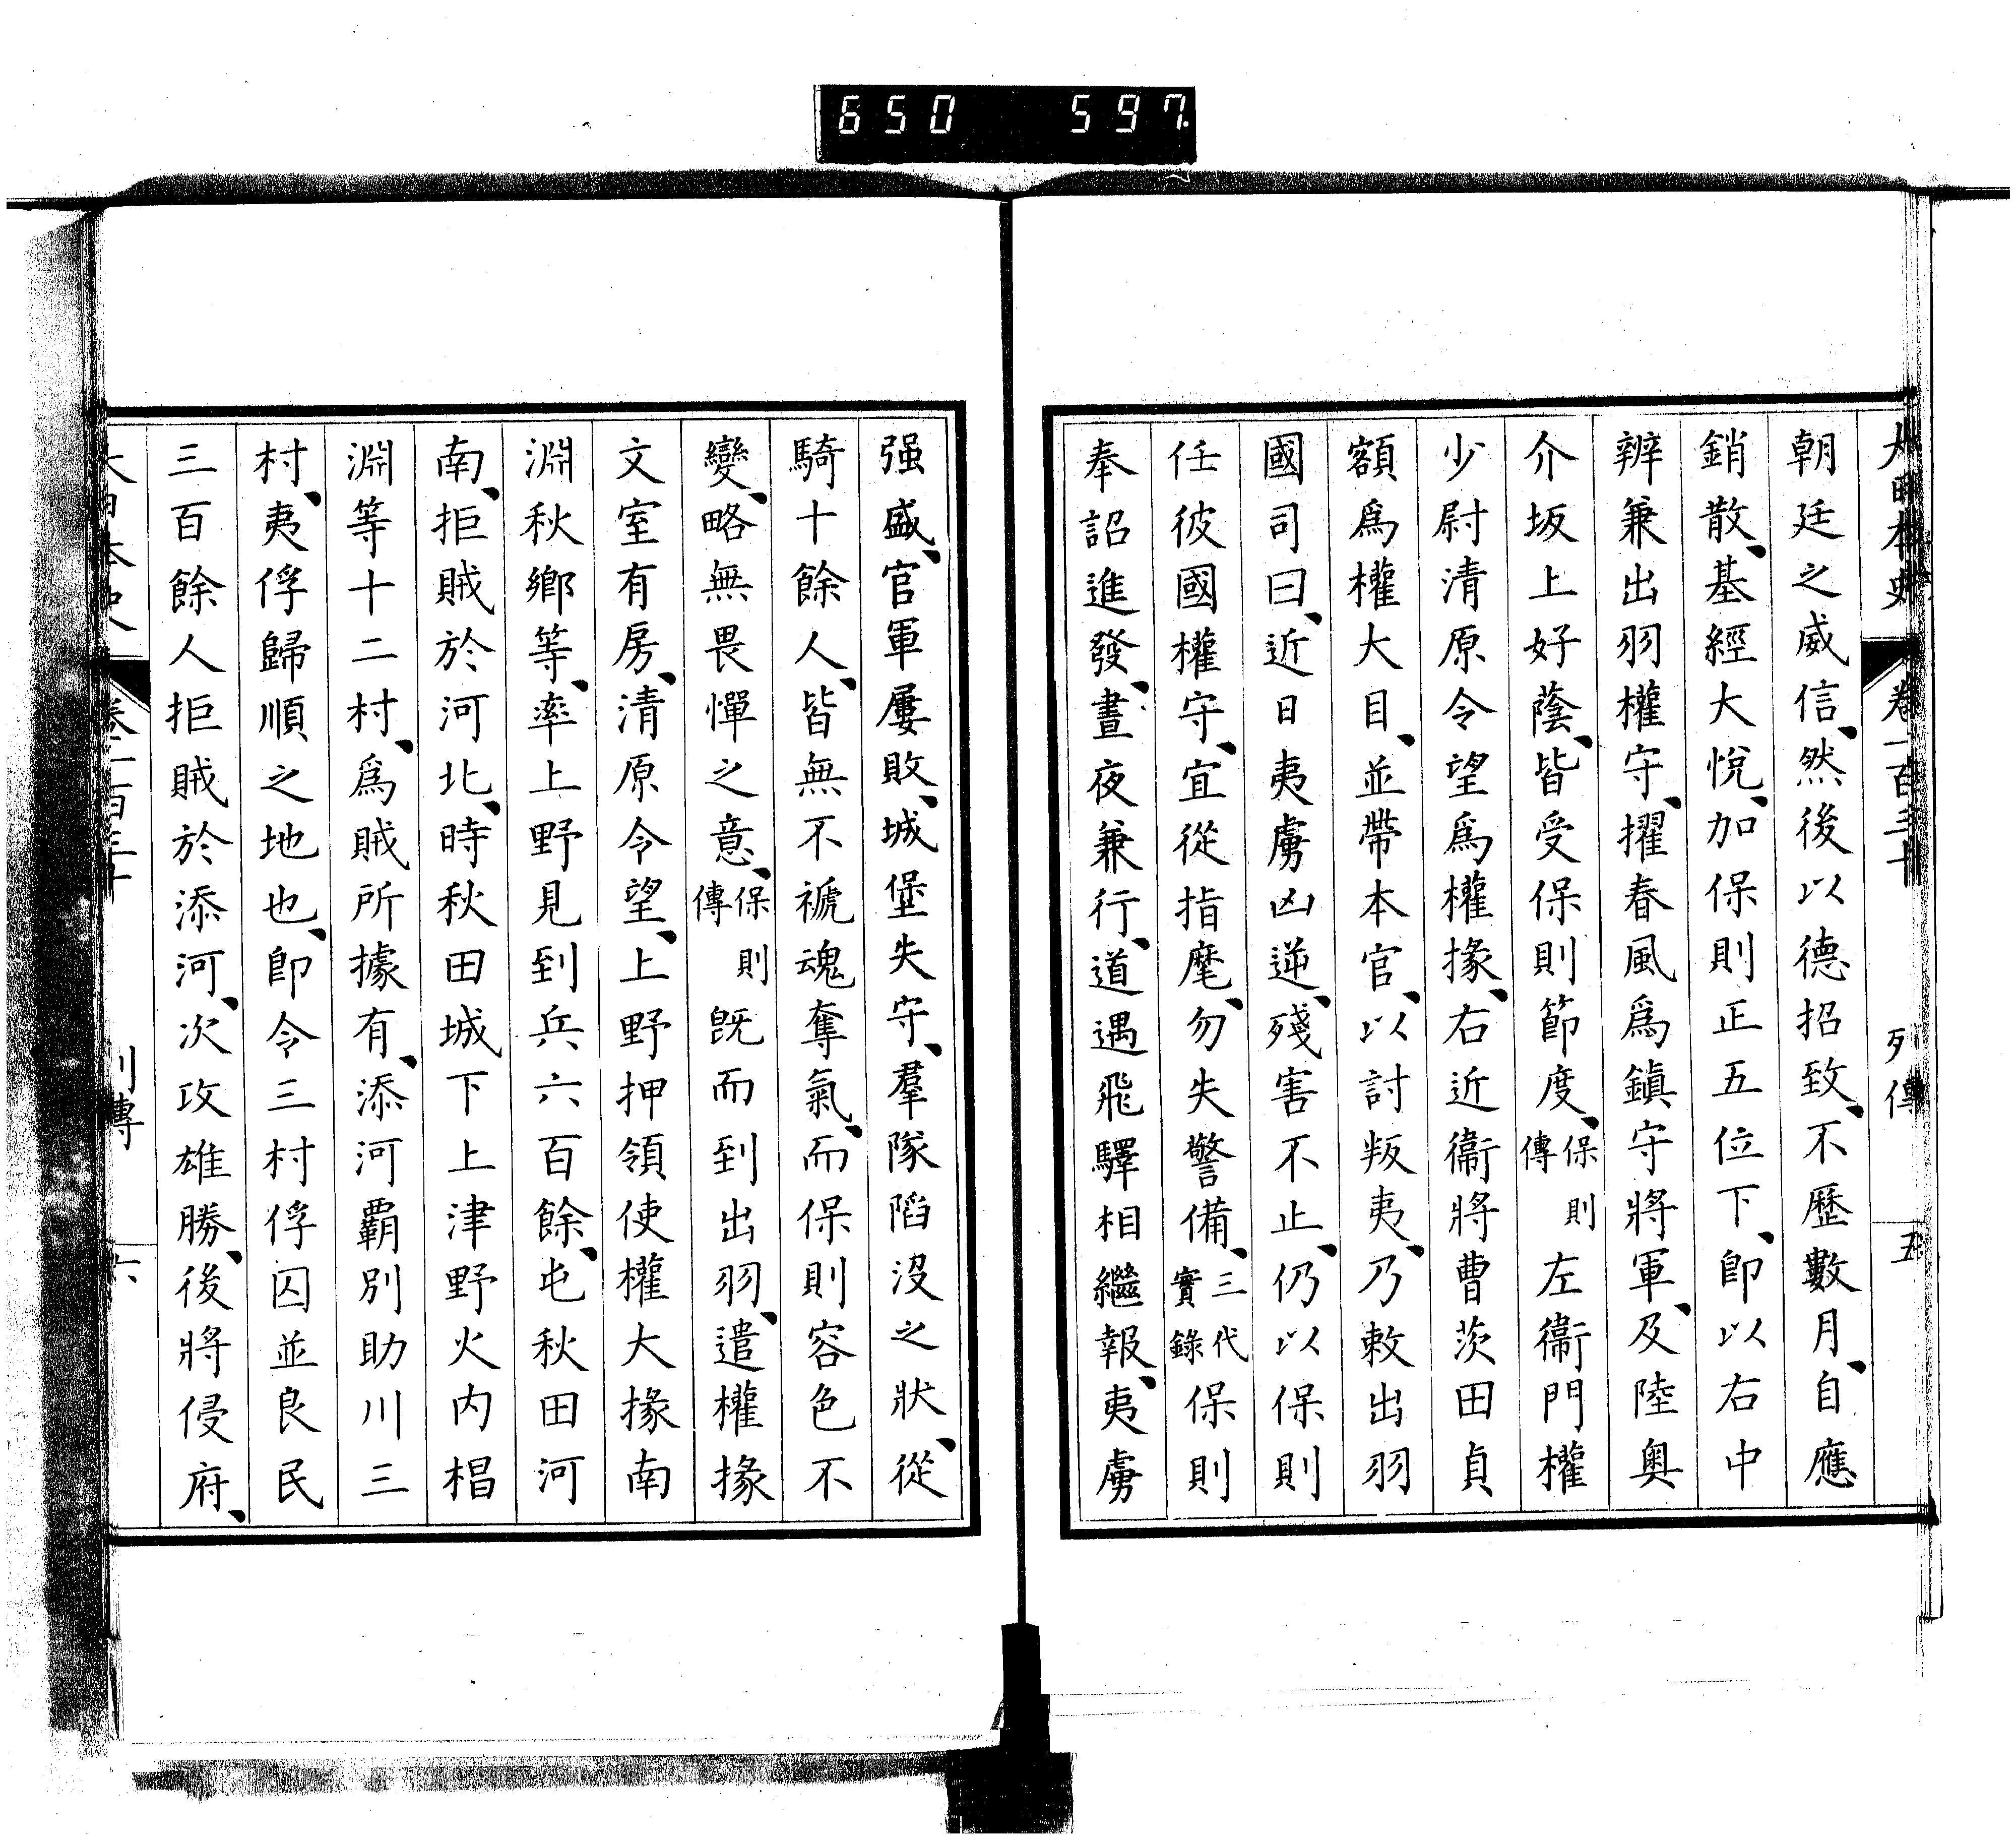 650 597
大日本史 卷一百三十 列傳 五
朝廷之威信、然後以德招致、不歷數月、自應
銷散、基經大悅、加保則正五位下、卽以右中
辨兼出羽權守、擢春風爲鎭守將軍、及陸奧
介坂上好蔭、皆受保則節度、保則傳左衞門權
少尉清原令望爲權掾、右近衞將曹茨田貞
額爲權大目、並帶本官、以討叛夷、乃敕出羽
國司曰、近日夷虜凶逆、殘害不止、仍以保則
任彼國權守、宜從指麾、勿失警備、三代實錄保則
奉詔進發、晝夜兼行、道遇飛驛相繼報、夷虜
强盛、官軍屢敗、城堡失守、羣隊陷沒之狀、從
騎十餘人、皆無不褫魂奪氣、而保則容色不
變、略無畏憚之意、保則傳既而到出羽、遣權掾
文室有房、清原令望、上野押領使權大掾南
淵秋鄉等、率上野見到兵六百餘、屯秋田河
南、拒賊於河北、時秋田城下上津野火内椙
淵等十二村、爲賊所據有、添河覇別助川三
村、夷俘歸順之地也、卽令三村俘囚並良民
三百餘人拒賊於添河、次攻雄勝、後將侵府、
大日本史 卷一百三十 列傳 六